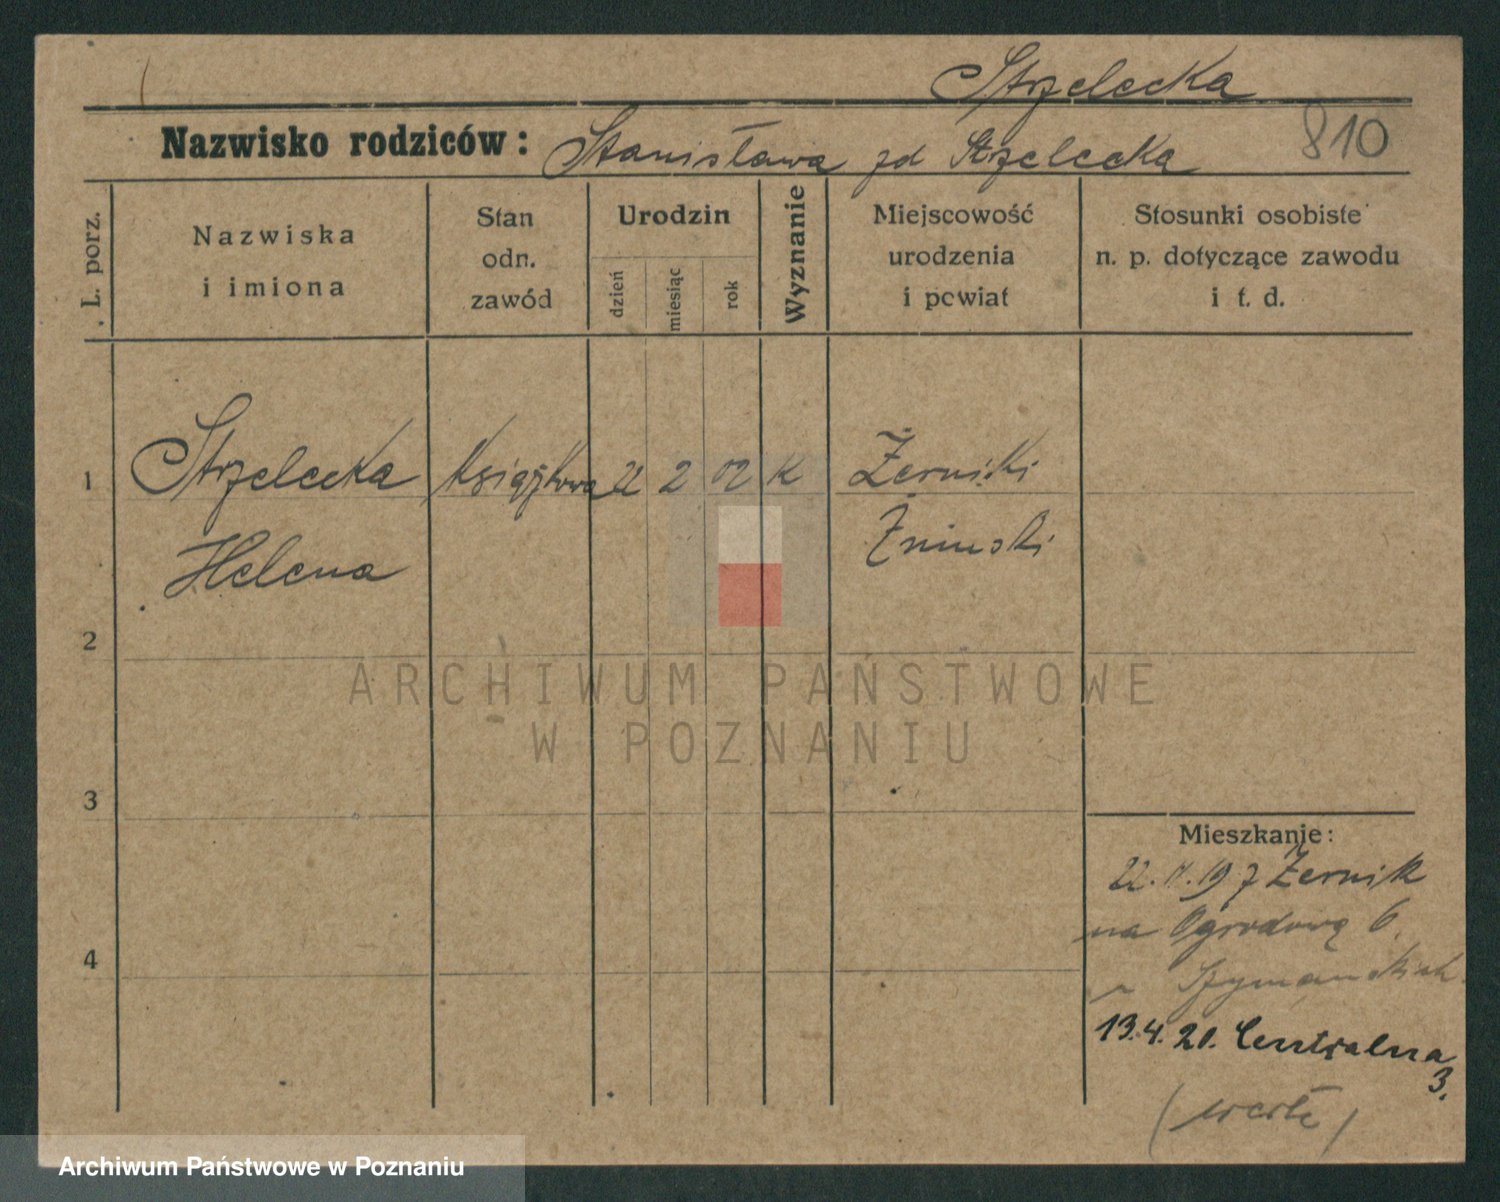 Strzelecka
Nazwisko rodziców: Stanisława zd Strzelecka
810
L. porz.
Nazwiska
i imiona
Stan
odn.
zawód
Urodzin
dzień
miesiąc
rok
Wyznanie
Miejscowość
urodzenia
i powiat
Stosunki osobiste
n. p. dotyczące zawodu
i t. d.
1
Strzelecka Książkowa 22 2 02 K Żerniki
Helena Żniński
2
3
4
Mieszkanie:
22. 19 z Żernik
na Ogrodową 6
Szymańskich
13.4.20. Centralna
3.
ARCHIWUM PAŃSTWOWE
W POZNANIU
Archiwum Państwowe w Poznaniu